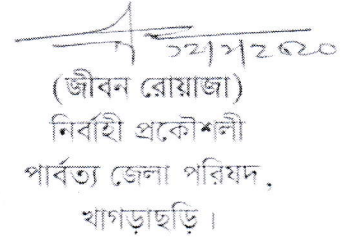 (জীবন রোয়াজা)
নির্বাহী প্রকৌশলী
পার্বত্য জেলা পরিষদ,
খাগড়াছড়ি।